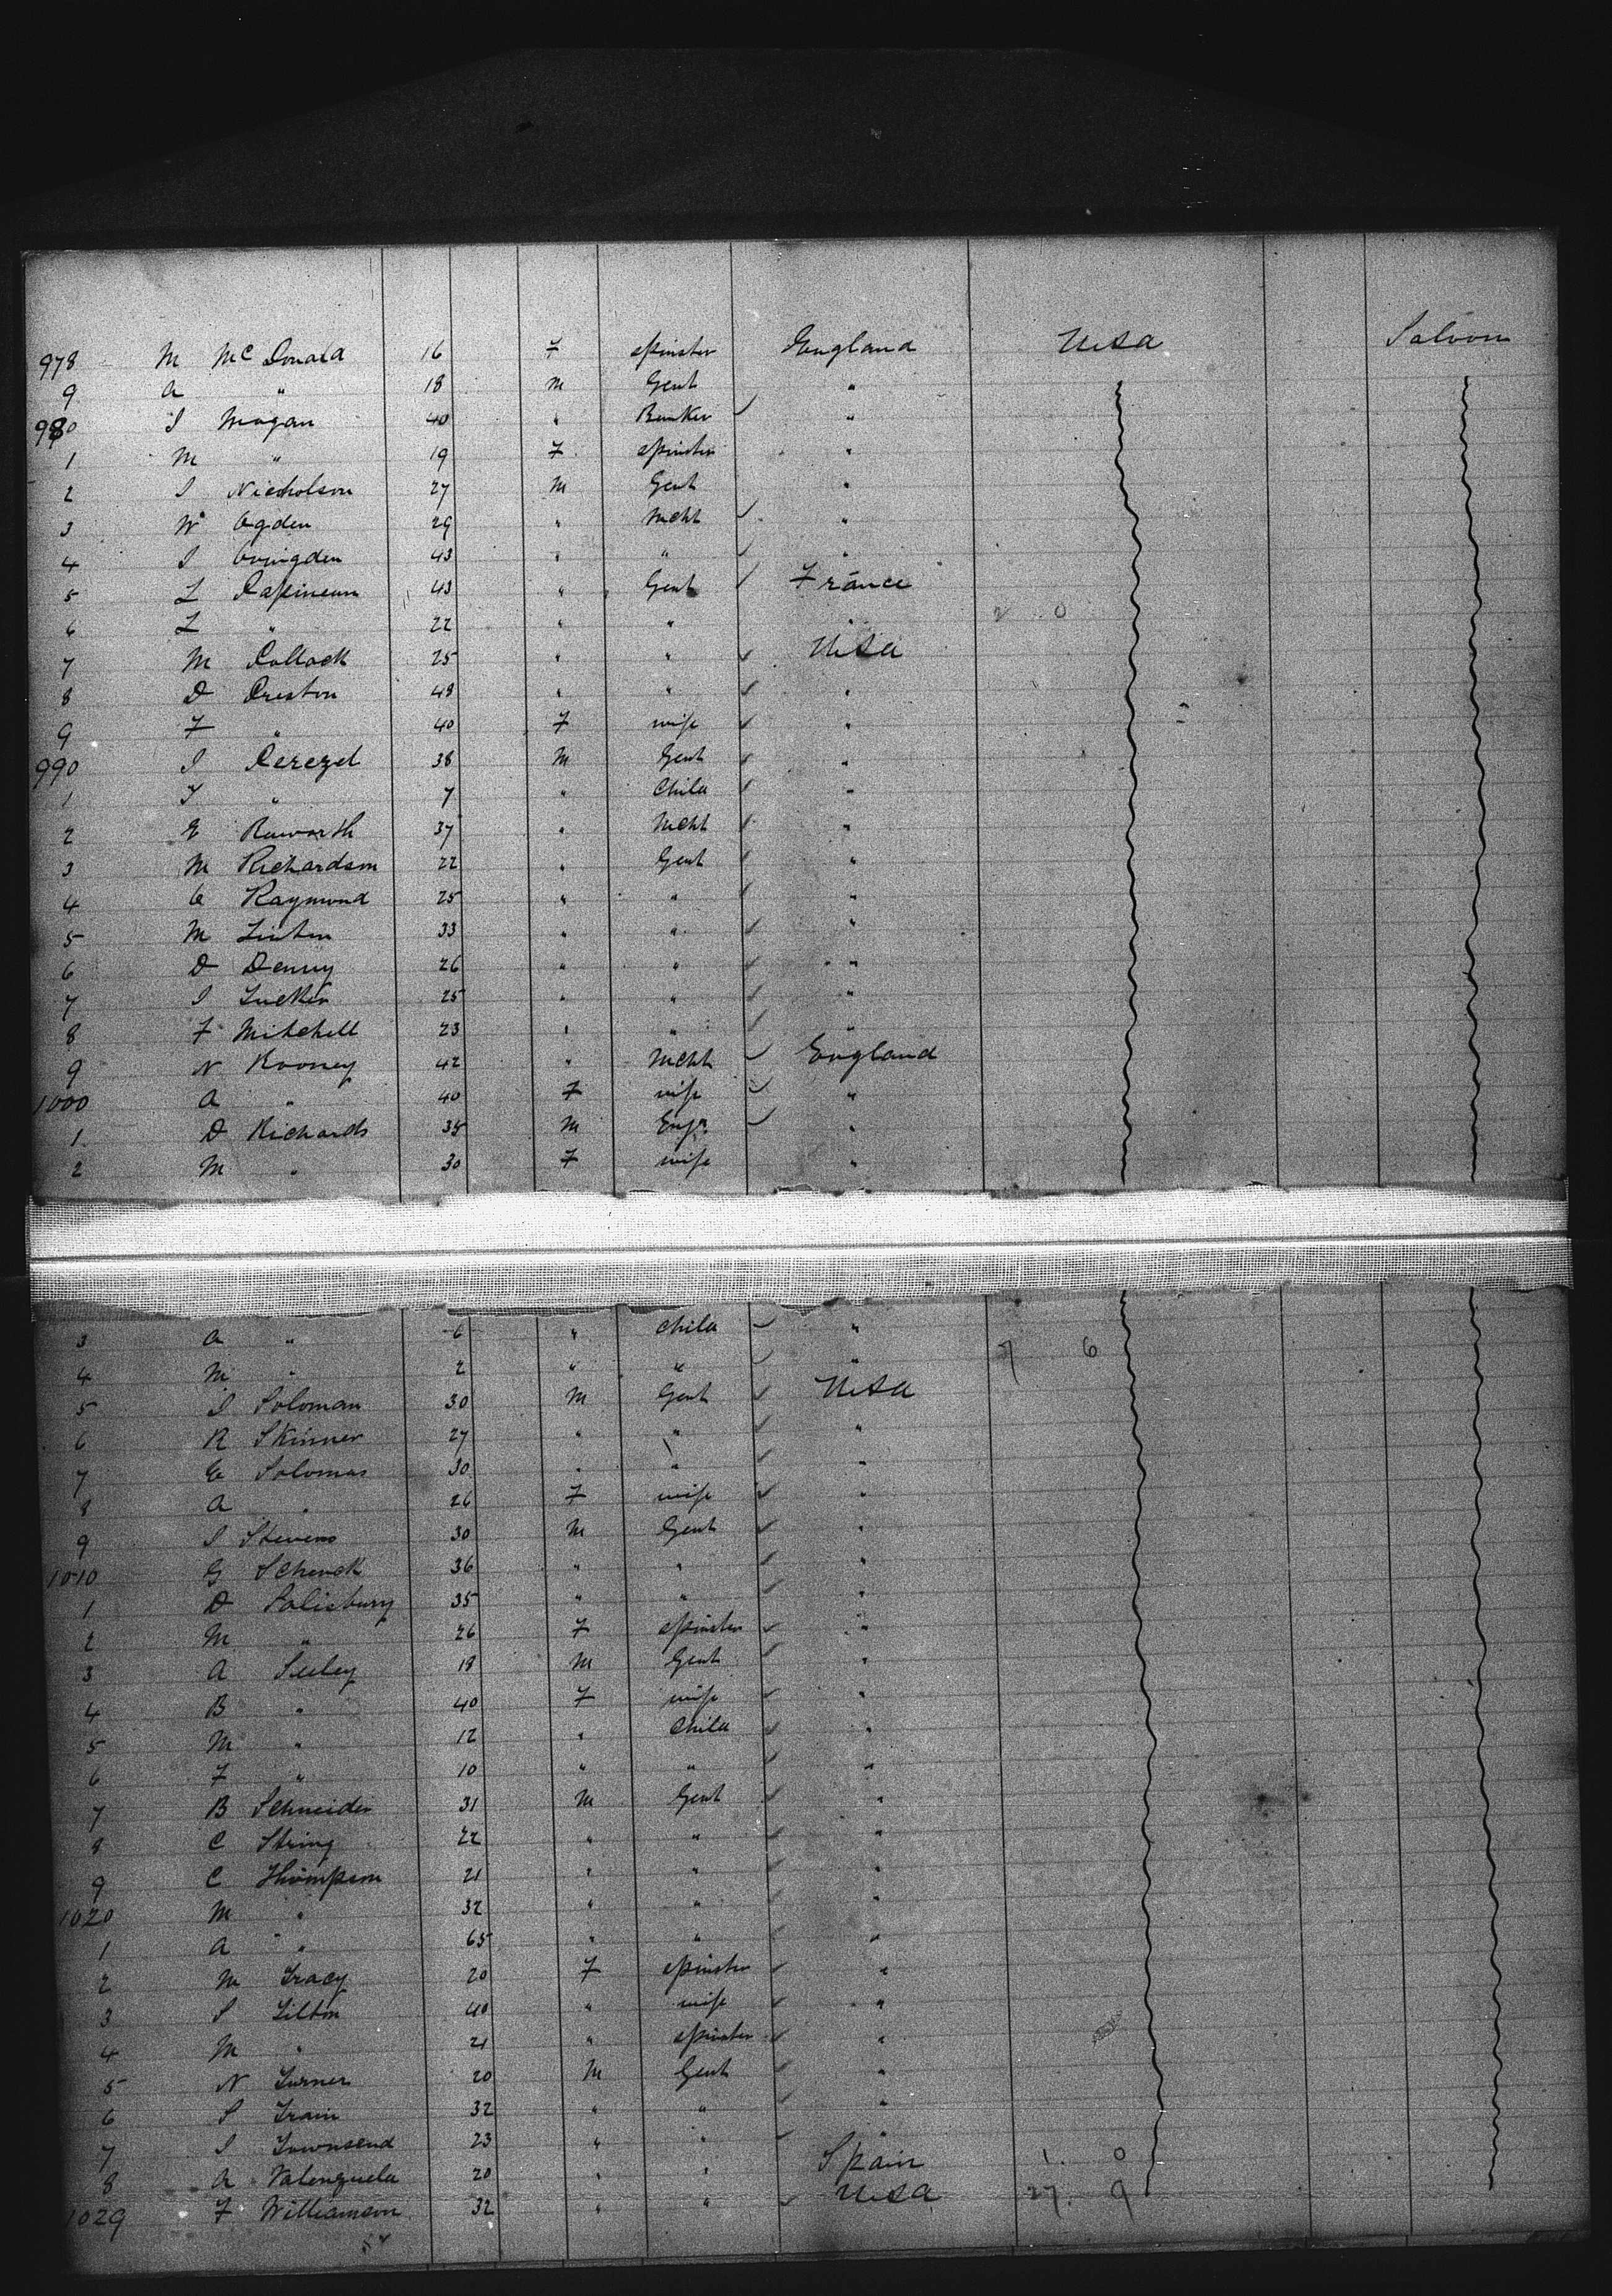 978 M McDonald 16 F spinster England USA Saloon
9 A " 18 M Gent "
980 J Mogan 40 " Banker "
1 M " 19 F spinster "
2 J Nicholson 27 M Gent "
3 W Ogden 29 " Mcht "
4 J Ovingden 43 " " "
5 L 43 " Gent France
6 L " 22 " " " 2 0
7 M Pollock 25 " " USA
8 D Preston 48 " " "
9 F " 40 F wife "
990 J Perezel 38 M Gent "
1 F " 7 " Child "
2 E Raworth 37 " Mcht "
3 M Richardson 22 " Gent "
4 C Raymond 25 " " "
5 M Linton 33 " " "
6 D Denny 26 " " "
7 J Tucker 25 " " "
8 F Mitchell 23 " " "
9 N Rooney 42 " Mcht England
1000 A " 40 F wife "
1 D Richards 35 M Engr "
2 M " 30 F wife "
3 A " 6 " child "
4 M " 2 " " " 7 6
5 J Soloman 30 M Gent USA
6 R Skinner 27 " " "
7 E Solomas 30 " " "
8 A " 26 F wife "
9 J Stevens 30 M Gent "
1010 G Schenck 36 " " "
1 D Salisbury 35 " " "
2 M " 26 F spinster "
3 A Seeley 18 M Gent "
4 B " 40 F wife "
5 M " 12 " Child "
6 F " 10 " " "
7 B Schneider 31 M Gent "
8 C String 22 " " "
9 C Thompson 21 " " "
1020 M " 32 " " "
1 A " 65 " " "
2 M Tracy 20 F spinster "
3 S Tilton 40 " wife "
4 M " 21 " spinster "
5 N Turner 20 M Gent "
6 S Train 32 " " "
7 J Townsend 23 " " "
8 A Valenzuela 20 " " Spain 1 0
1029 F Williamson 32 " " USA 27 9